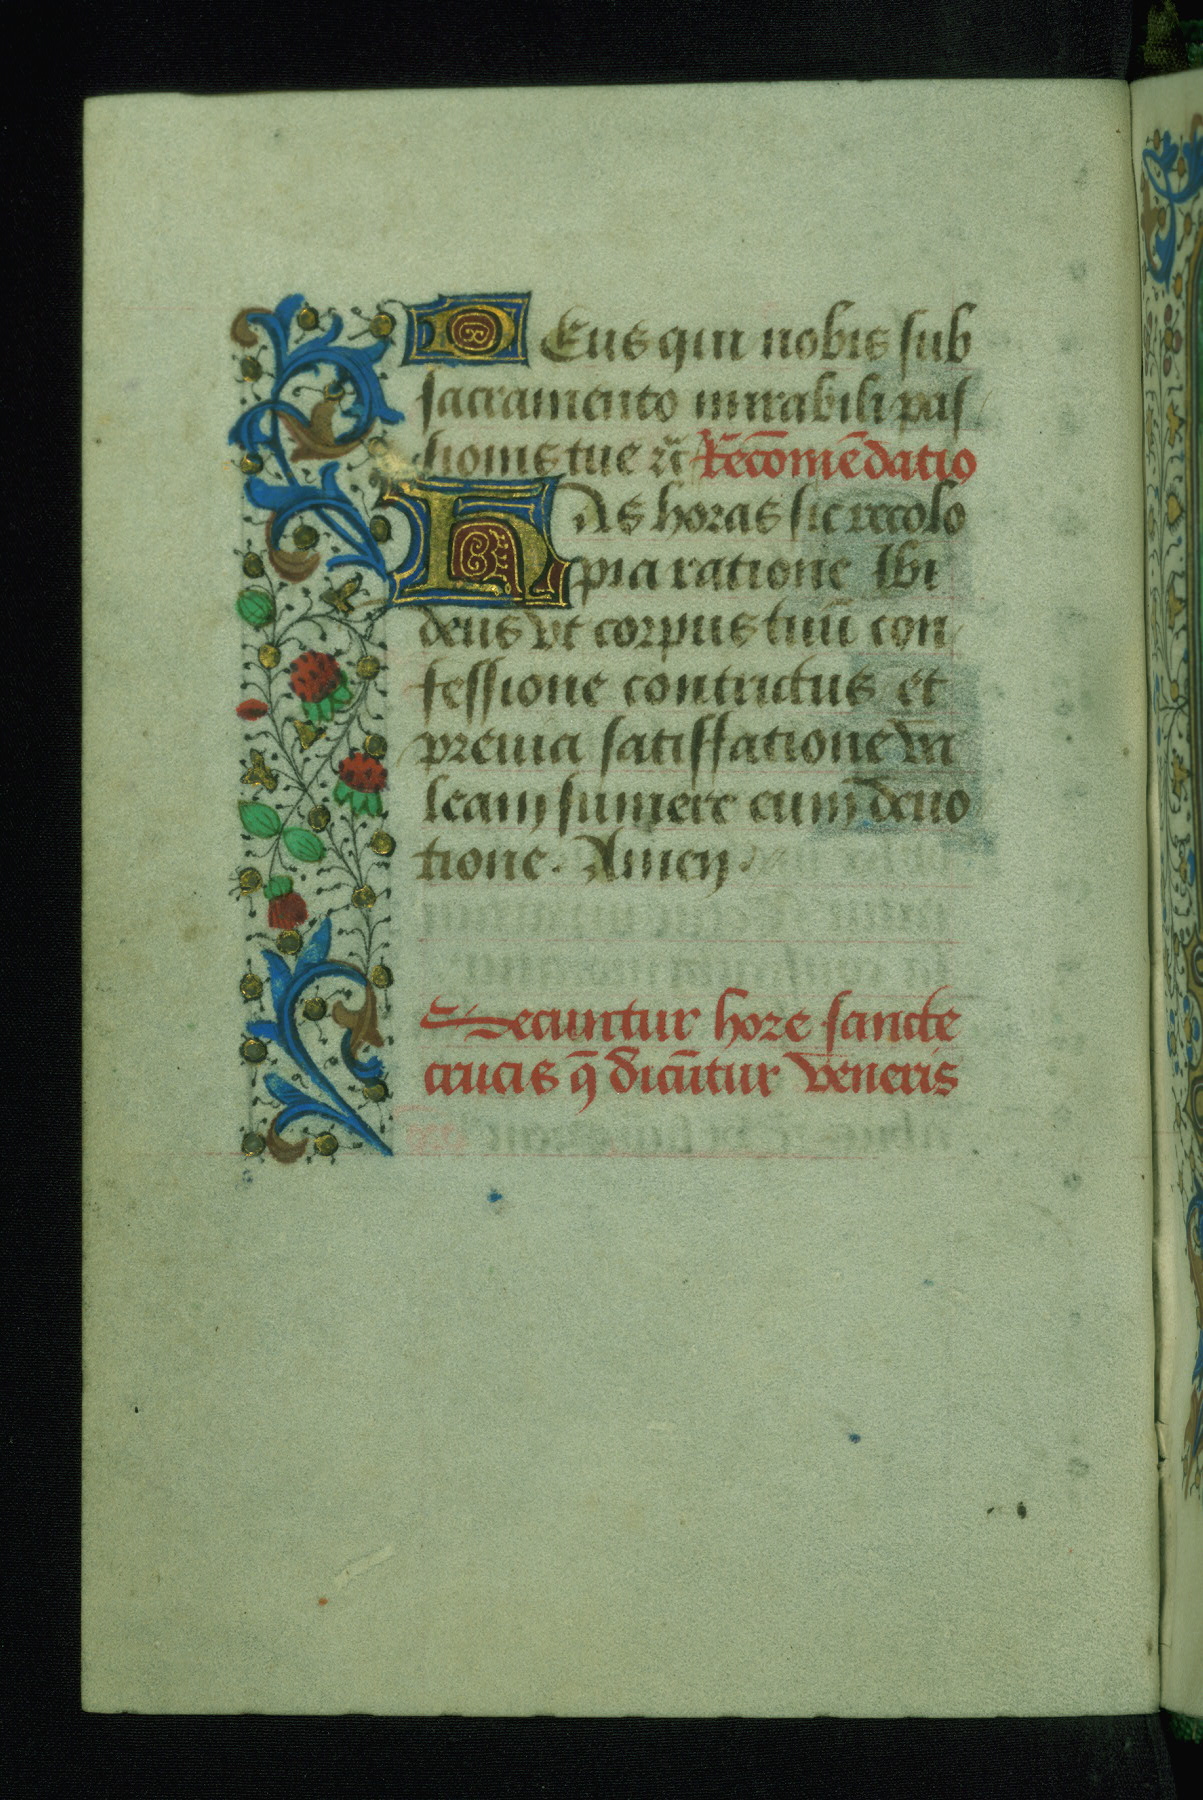 DEus qui nobis sub
sacramento mirabili pas
sionis tue rc̃ Recōmēdatio
HAs horas sic recolo
pia ratione Ibi
deus vt corpus tuū con
fessione contrictus et
preuia satisffatione va
leam sumere cum deuo
tione. Amen.
Secuntur hore sancte
crucis q̄ dicūtur veneris